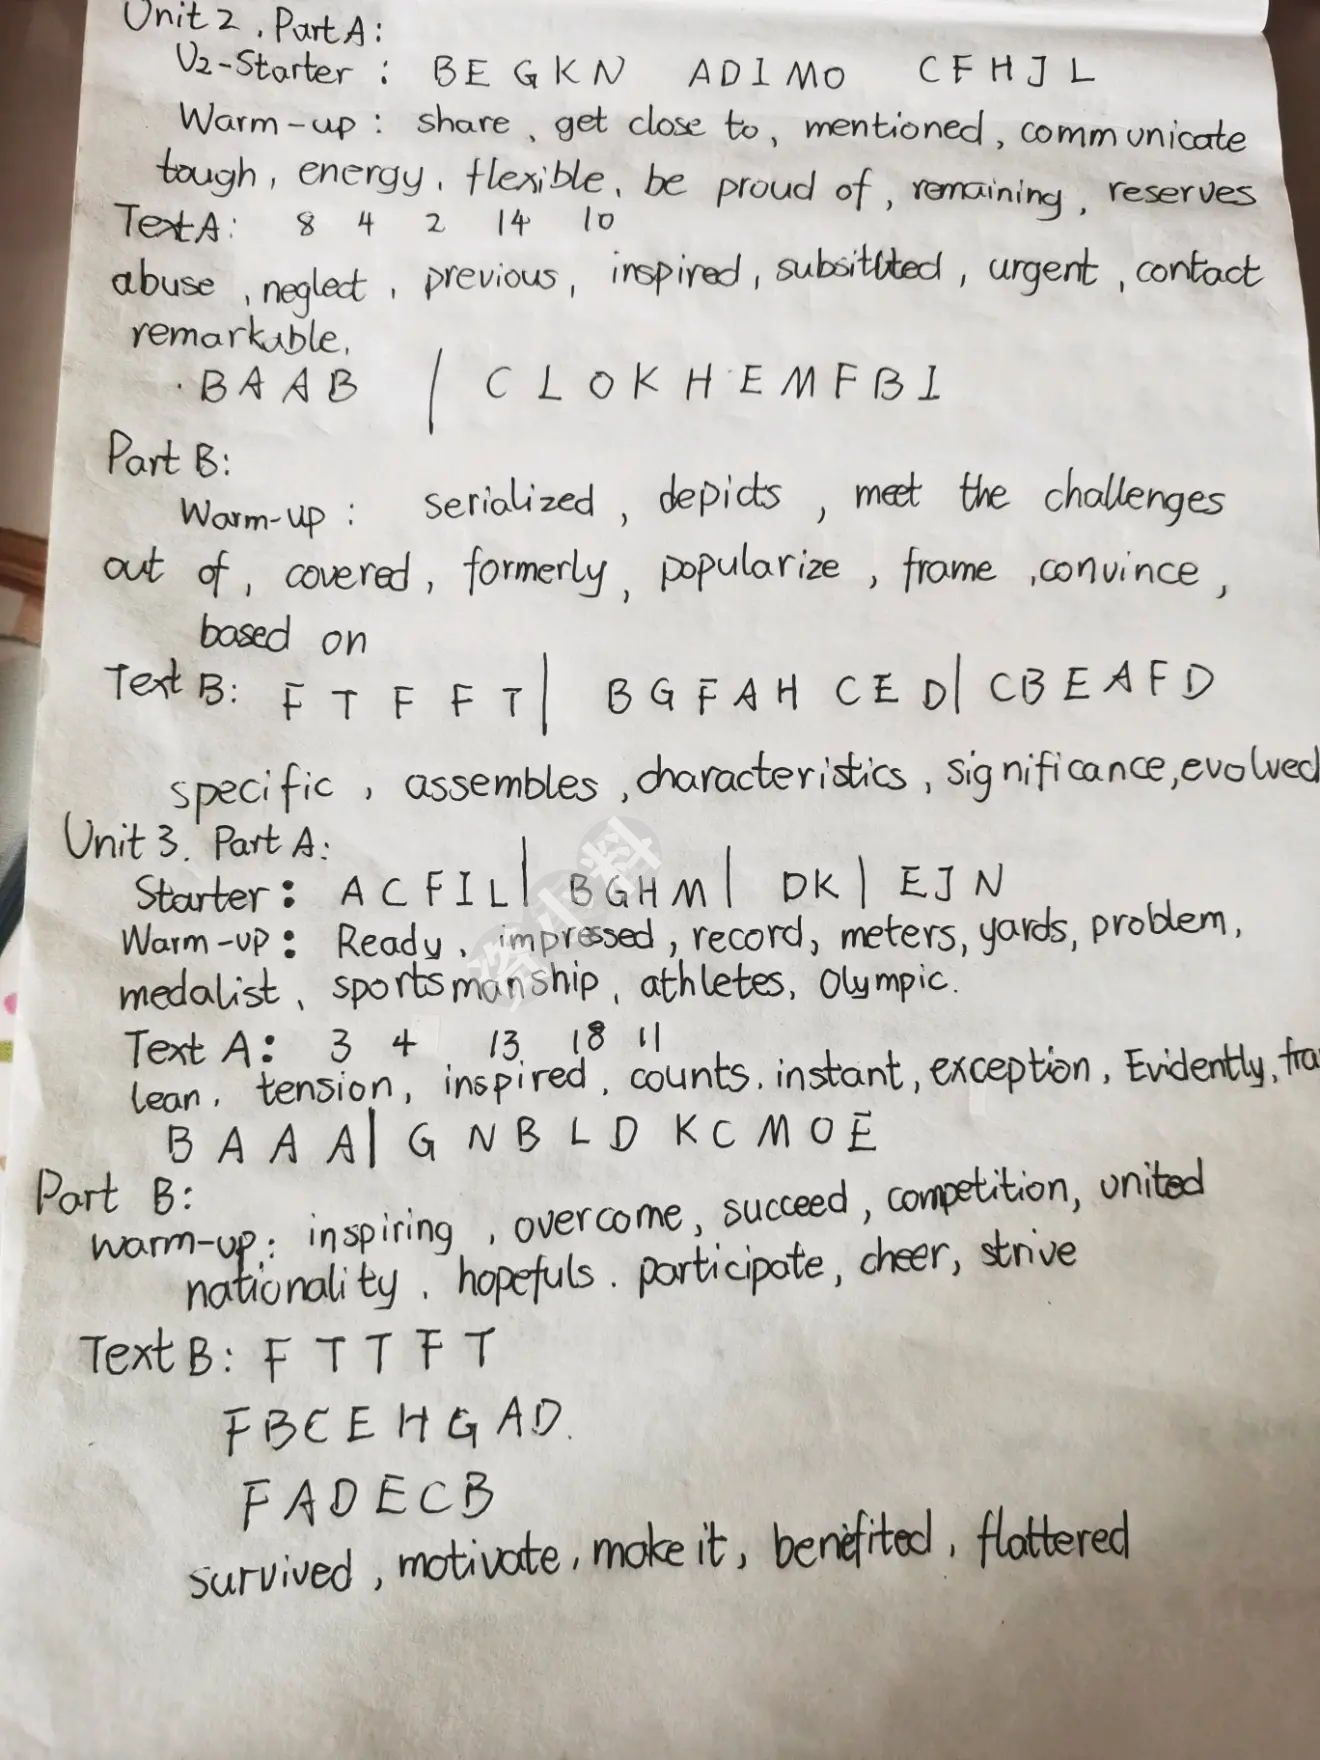 Unit 2. Part A:
U2-Starter: B E G K N A D I M O C F H J L
Warm-up: share, get close to, mentioned, communicate
tough, energy, flexible, be proud of, remaining, reserves
Text A: 8 4 2 14 10
abuse, neglect, previous, inspired, subsitituted, urgent, contact
remarkable.
B A A B | C L O K H E M F B I
Part B:
Warm-up: serialized, depicts, meet the challenges
out of, covered, formerly, popularize, frame, convince,
based on
Text B: F T F F T | B G F A H C E D | C B E A F D
specific, assembles, characteristics, significance, evolved
Unit 3. Part A:
Starter: A C F I L | B G H M | D K | E J N
Warm-up: Ready, impressed, record, meters, yards, problem,
medalist, sportsmanship, athletes, Olympic.
Text A: 3 4 13 18 11
lean, tension, inspired, counts, instant, exception, Evidently,
B A A A | G N B L D K C M O E
Part B:
warm-up: inspiring, overcome, succeed, competition, united
nationality, hopefuls. participate, cheer, strive
Text B: F T T F T
F B C E H G A D.
F A D E C B
survived, motivate, make it, benefited, flattered